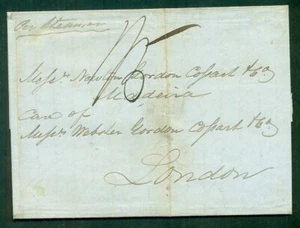 Per Steamer
Messrs Newton Gordon Cossart & Co
Madeira
Care of
Messrs Webster Gordon Cossart & Co
London